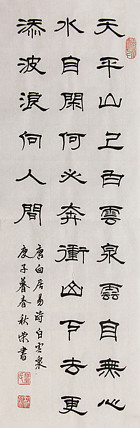 天平山上白雲泉雲自無心
水自閑何必奔衝山下去更
添波浪向人間
唐白居易詩白雲泉
庚子暮春秋書